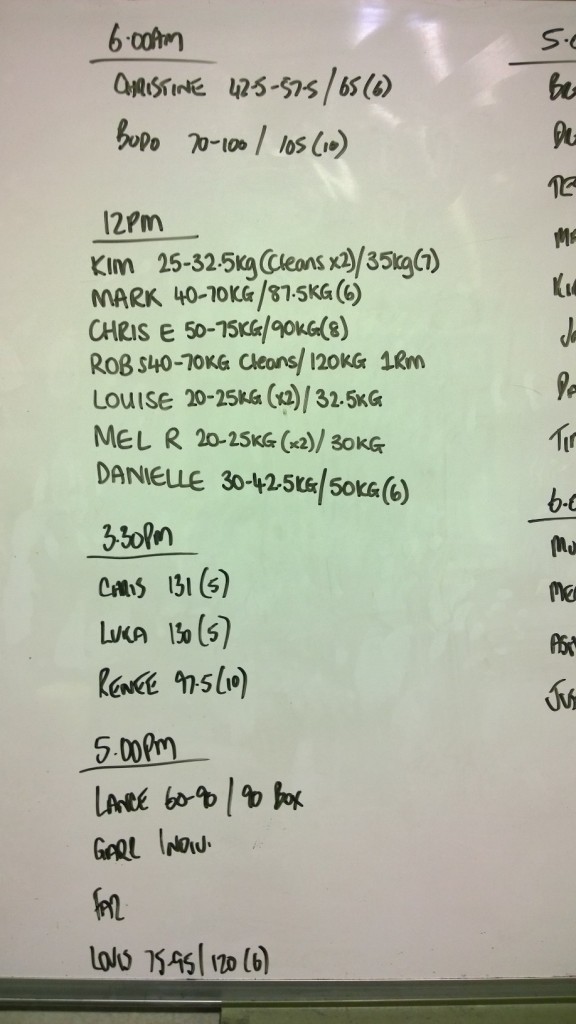 6.00AM
CHRISTINE 42.5-57.5/65(6)
BUDO 70-100/ 105(10)
12PM
KIM 25-32.5kg(Cleans x2)/35kg(7)
MARK 40-70KG/87.5KG(6)
CHRIS E 50-75KG/90KG(8)
ROB S40-70KG Cleans/120KG 1RM
LOUISE 20-25KG(x2)/32.5KG
MEL R 20-25KG(x2)/30KG
DANIELLE 30-42.5KG/50KG(6)
3.30PM
CHRIS 131(5)
LUKA 130(5)
RENEE 97.5(10)
5.00PM
LANCE 60-90/90 BOX
INDIV.
LOUIS 75-95/120(6)